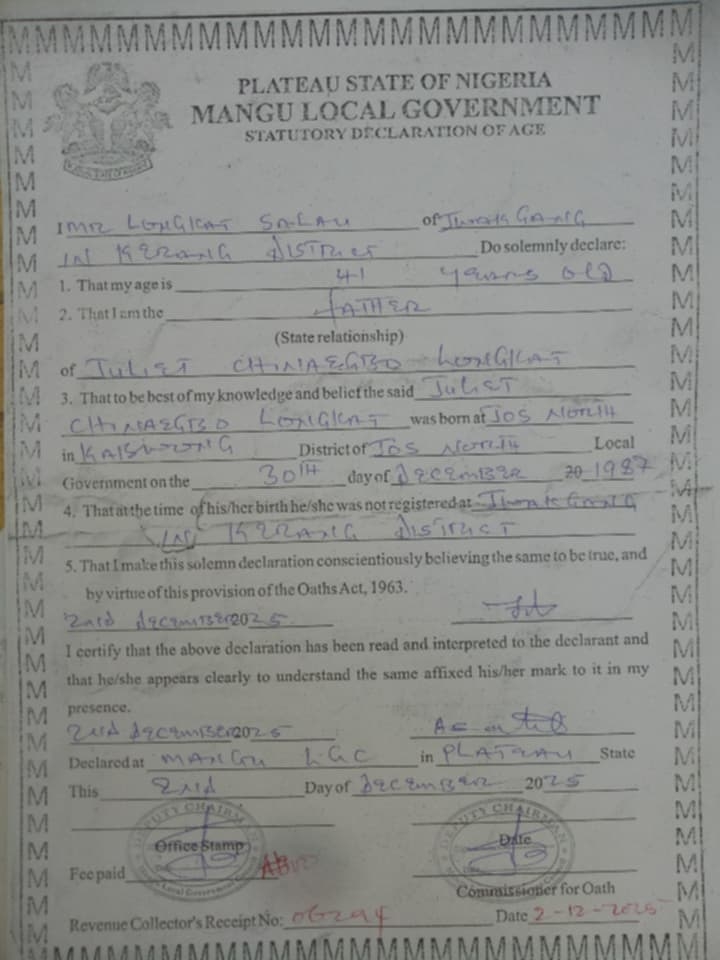 PLATEAU STATE OF NIGERIA
MANGU LOCAL GOVERNMENT
STATUTORY DECLARATION OF AGE
I MR LONGKAT SALAU of JWAK GANG
IN KERANG DISTRICT Do solemnly declare:
1. That my age is 41 years old
2. That I am the FATHER
(State relationship)
of JULIET CHINAEGBO LONGKAT
3. That to be best of my knowledge and belief the said JULIET
CHINAEGBO LONGKAT was born at JOS NORTH
in KABWONG District of JOS NORTH Local
Government on the 30TH day of DECEMBER 20 1987
4. That at the time of his/her birth he/she was not registered at JWAK GANG
IN KERANG DISTRICT
5. That I make this solemn declaration conscientiously believing the same to be true, and
by virtue of this provision of the Oaths Act, 1963.
2nd DECEMBER 2025
I certify that the above declaration has been read and interpreted to the declarant and
that he/she appears clearly to understand the same affixed his/her mark to it in my
presence.
2nd DECEMBER 2025
Declared at MANGU LGC in PLATEAU State
This 2nd Day of DECEMBER 2025
DEPUTY CHAIRMAN DEPUTY CHAIRMAN
Office Stamp Date
Fee paid
Commissioner for Oath
Revenue Collector's Receipt No: 06294 Date 2-12-2025